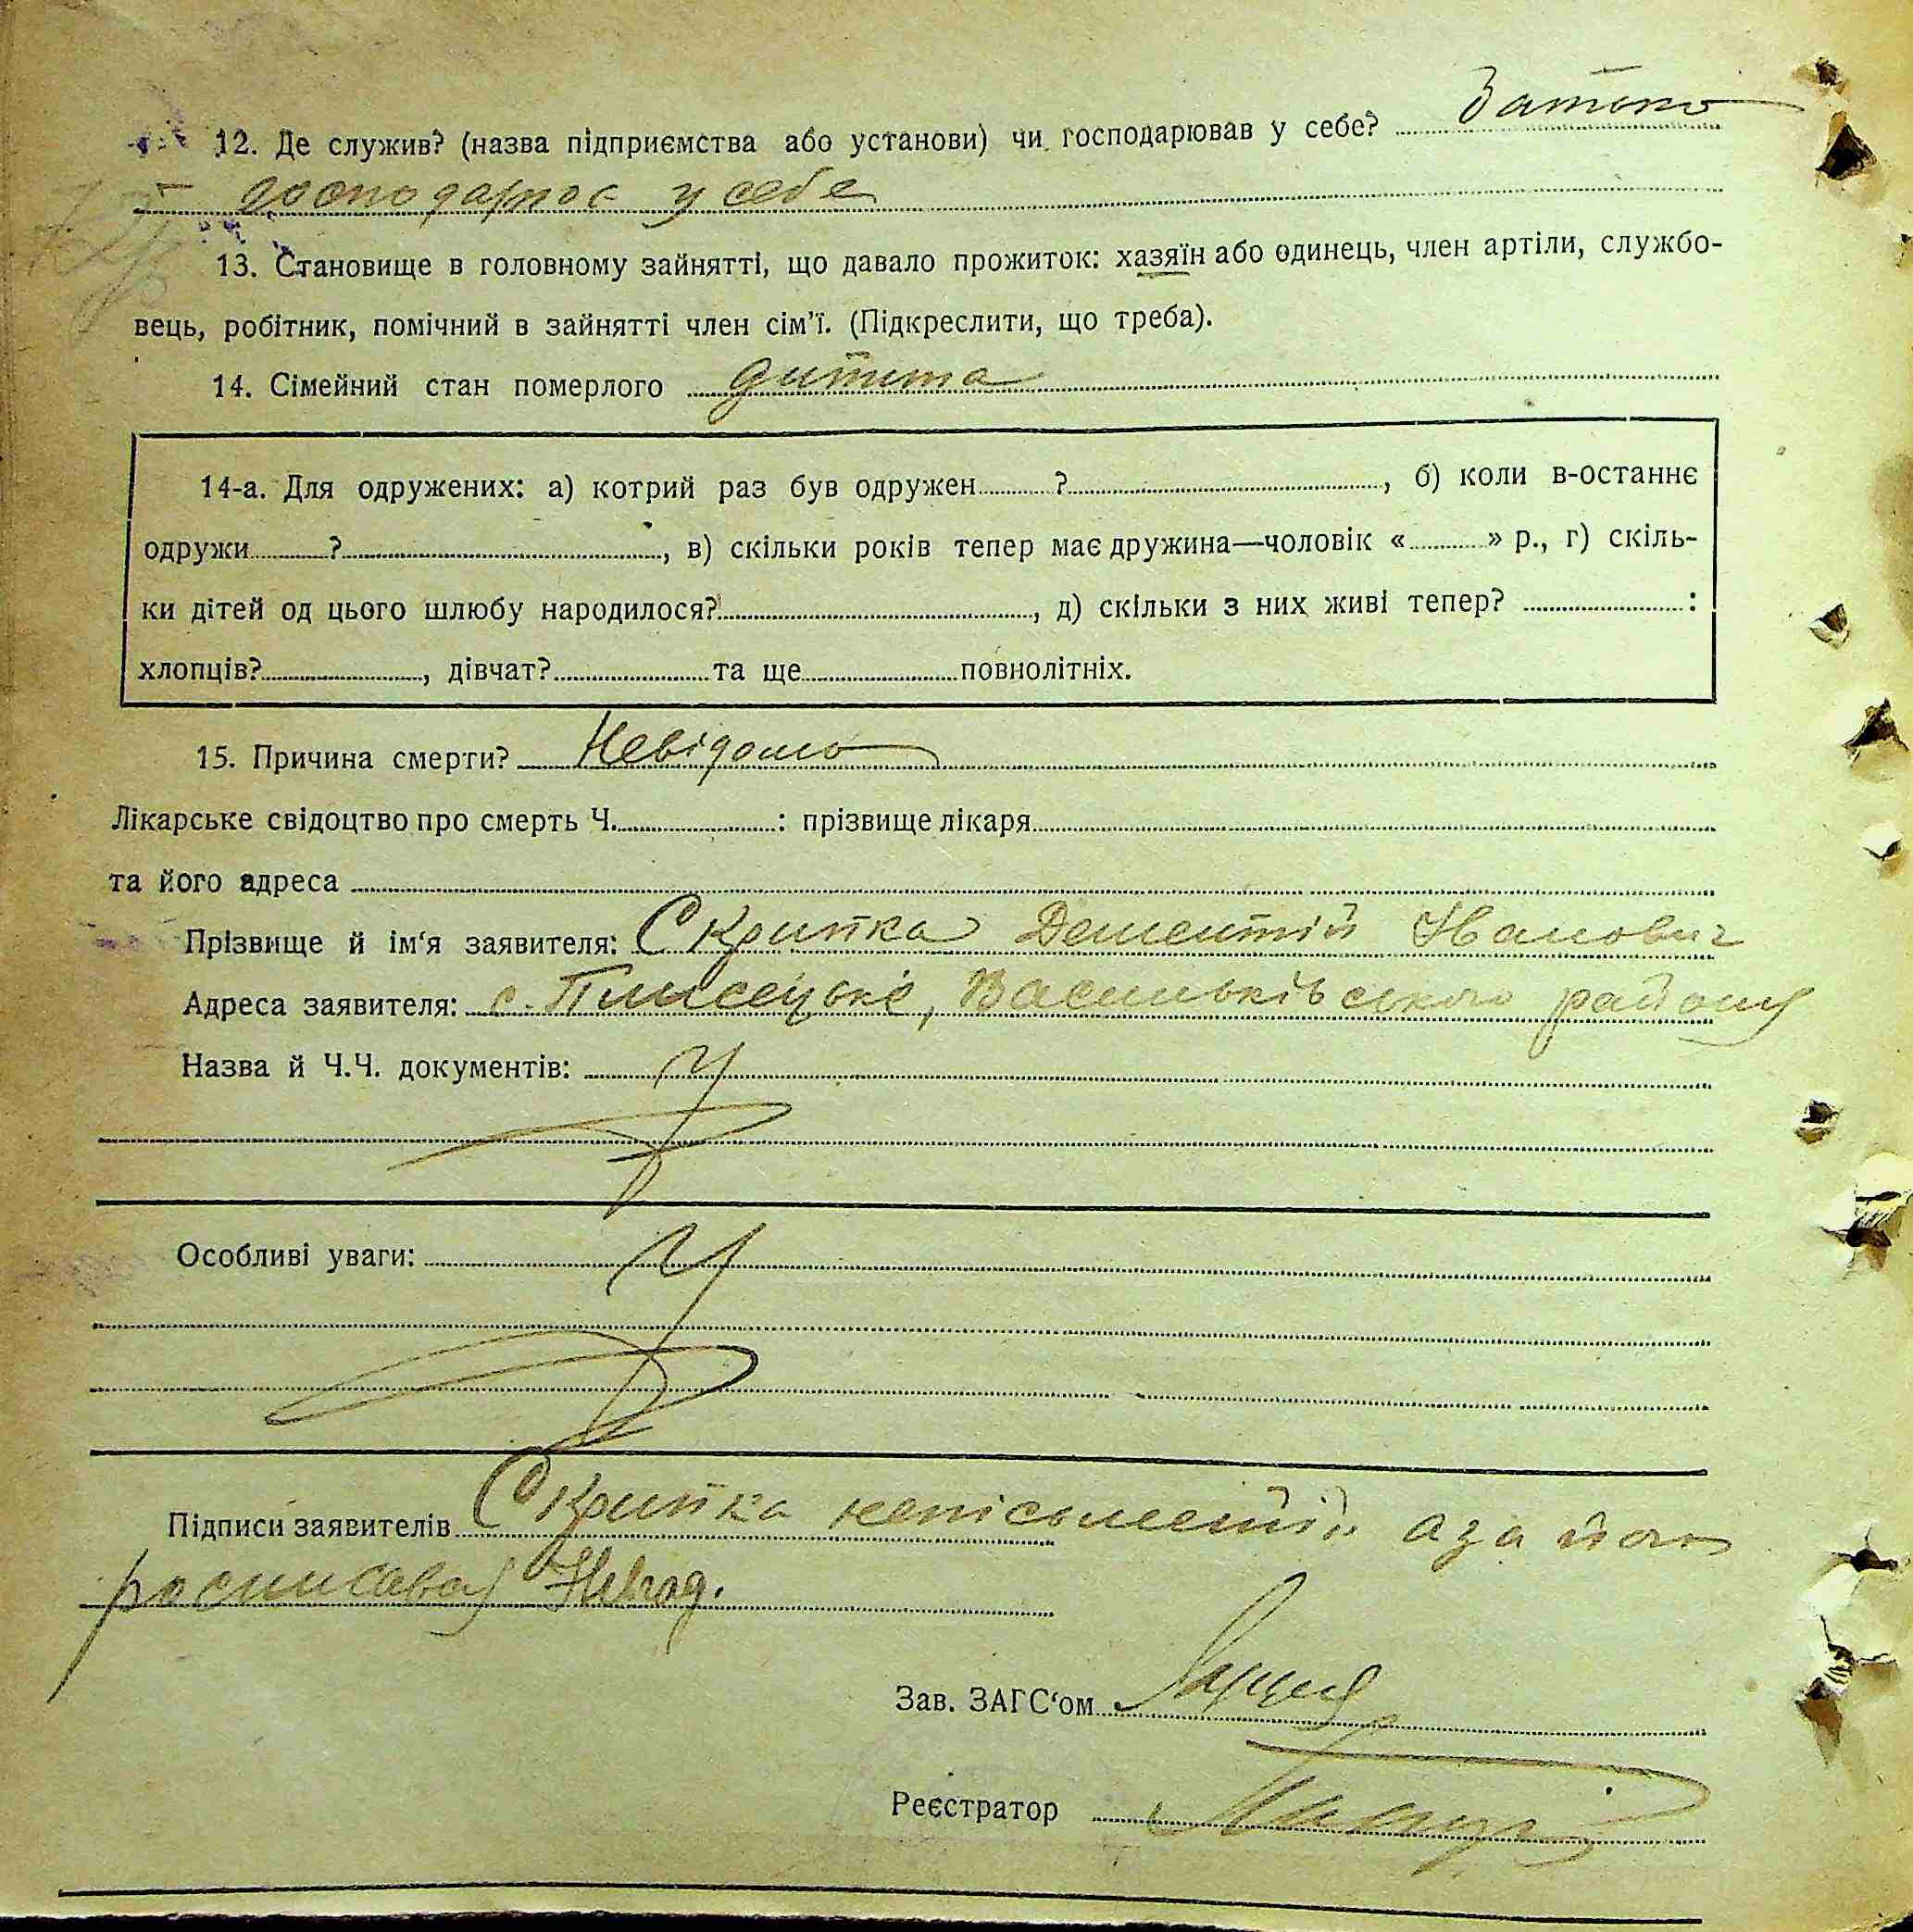 12. Де служив? (назва підприємства або установи) чи господарював у себе? Батько
господарює у себе
13. Становище в головному зайнятті, що давало прожиток: хазяїн або одинець, член артіли, службо-
вець, робітник, помічний в зайнятті член сім'ї. (Підкреслити, що треба).
14. Сімейний стан померлого дитина
14-а. Для одружених: а) котрий раз був одружен ? , б) коли в-останнє
одружи ? , в) скільки років тепер має дружина—чоловік « » р., г) скіль-
ки дітей од цього шлюбу народилося? , д) скільки з них живі тепер? :
хлопців? , дівчат? та ще повнолітніх.
15. Причина смерти? Невідомо
Лікарське свідоцтво про смерть Ч. : прізвище лікаря
та його адреса
Прізвище й ім'я заявителя: Скрипка Дементій Іванович
Адреса заявителя: с. Плисецьке, Васильківського району
Назва й Ч.Ч. документів:
Особливі уваги:
Підписи заявителів Скрипка неписьмений а за його
росписавсь
Зав. ЗАГС'ом
Реєстратор